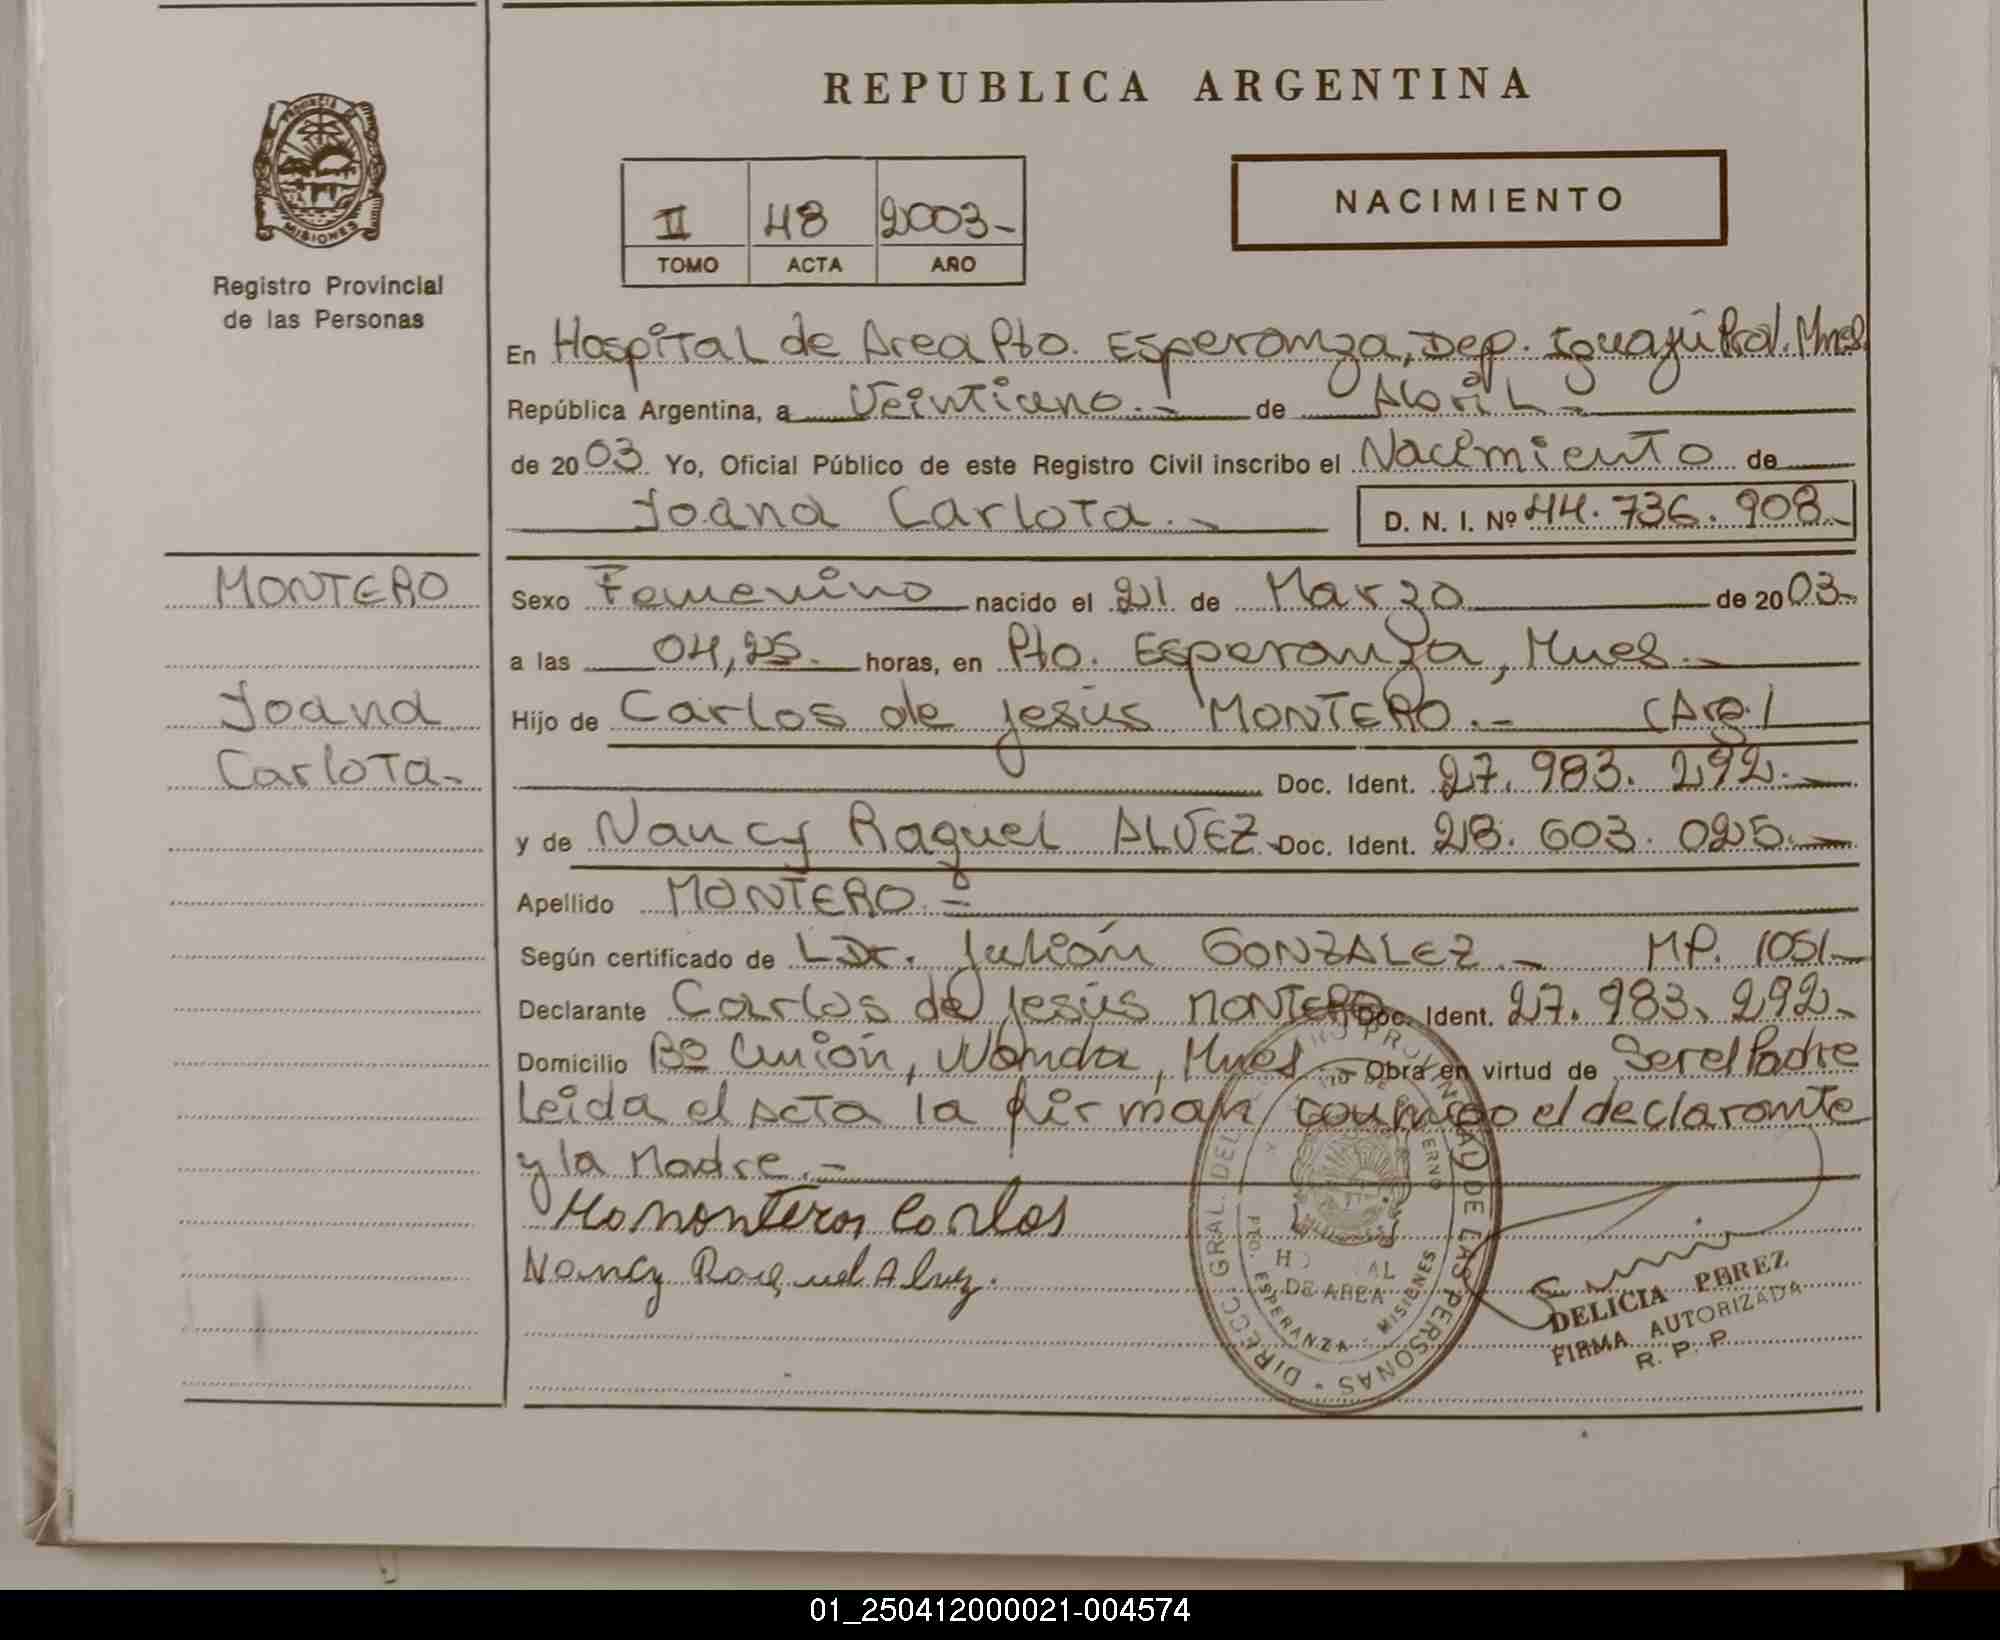 REPUBLICA ARGENTINA
PROVINCIA
MISIONES
Registro Provincial
de las Personas
NACIMIENTO
II 48 2003-
TOMO ACTA AÑO
En Hospital de Area Pto. Esperanza, Dep. Iguazú Mnes.
República Argentina, a Veintiuno.- de Abril-
de 2003. Yo, Oficial Público de este Registro Civil inscribo el Nacimiento de
Yoana Carlota.- D. N. I. Nº 44.736.908-
MONTERO
Yoana
Carlota-
Sexo Femenino nacido el 21 de Marzo de 2003-
a las 04,25. horas, en Pto. Esperanza, Mnes.-
Hijo de Carlos de Jesús MONTERO.- (Arg)
Doc. Ident. 27.983.292.-
y de Nancy Raquel ALVEZ- Doc. Ident. 28.603.025.-
Apellido MONTERO.-
Según certificado de Dr. Julián GONZALEZ.- MP. 1051-
Declarante Carlos de Jesús MONTERO Doc. Ident. 27.983.292-
Domicilio Bº Unión, Wanda, Mnes.- Obra en virtud de Ser el Padre
Leida el Acta la firman conmigo el declarante
y la Madre.-
Carlos
Nancy Raquel Alvez.
DIRECC. GRAL. DEL PROVINCIAL DE LAS PERSONAS
DE AREA
PTO. ESPERANZA - MISIONES
DELICIA PEREZ
FIRMA AUTORIZADA
R. P. P.
01_250412000021-004574